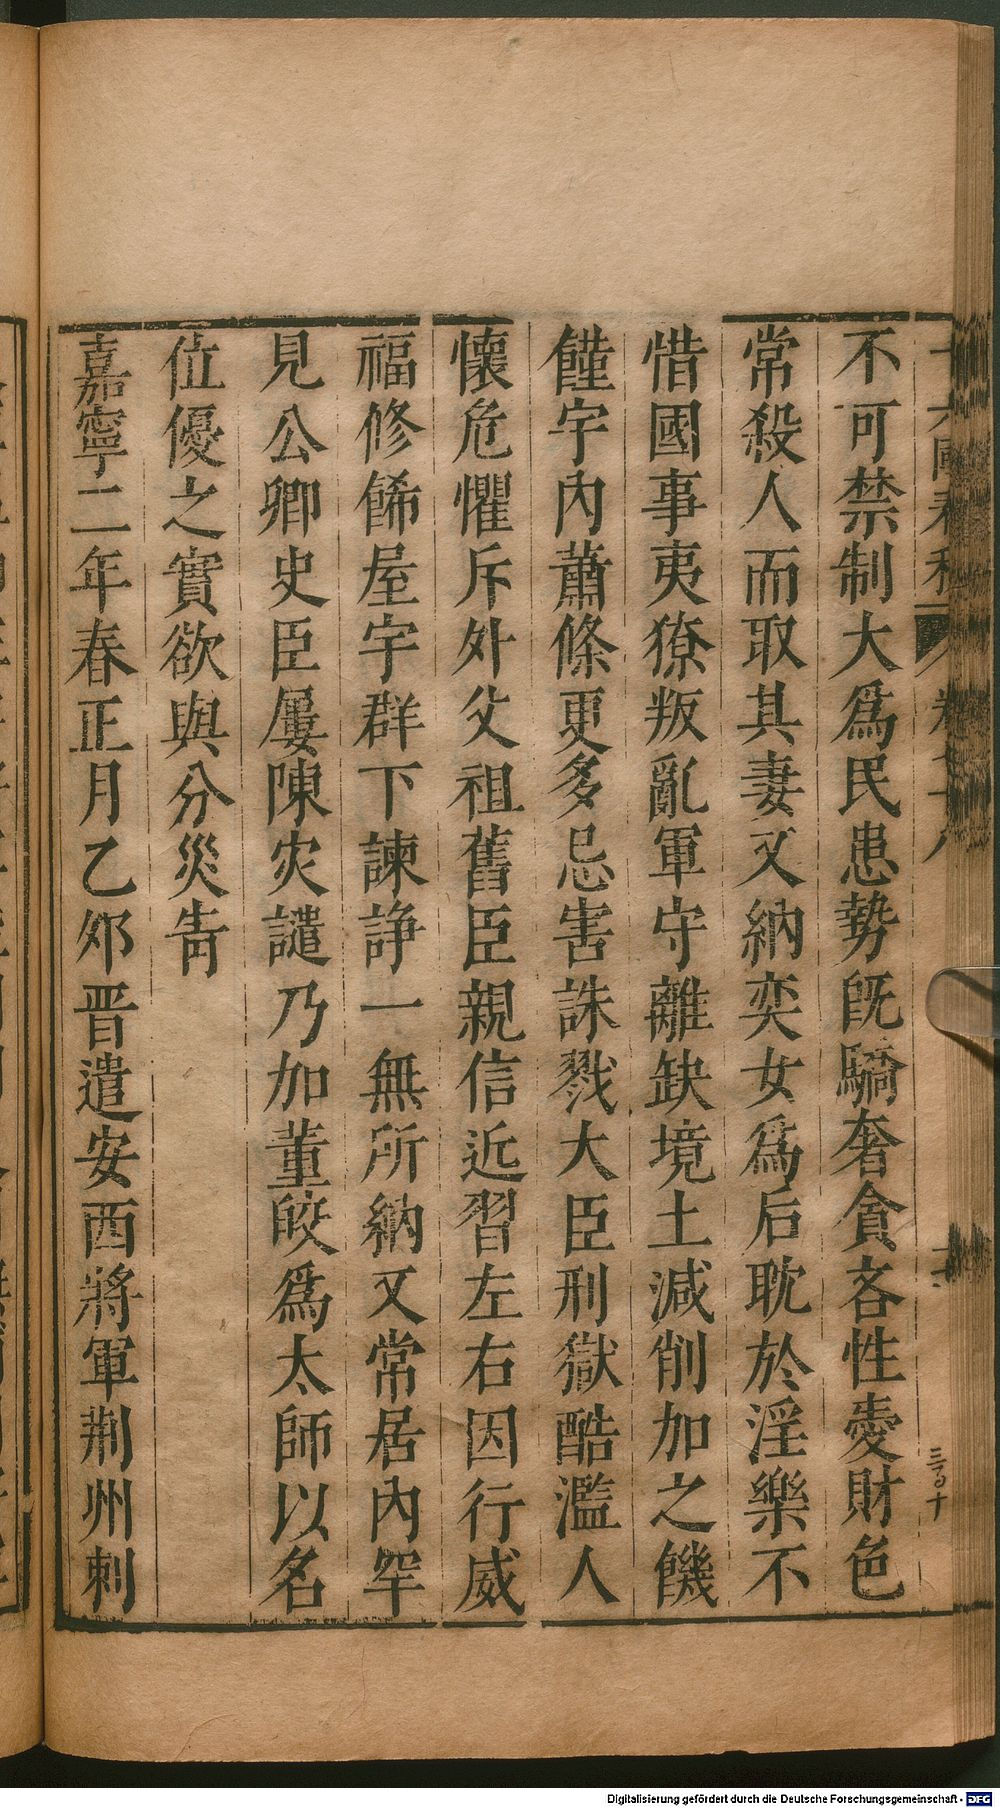 不可禁制大爲民患勢旣驕奢貪吝性愛財色
常殺人而取其妻又納奕女爲后耽於淫樂不
惜國事夷獠叛亂軍守離缺境土減削加之饑
饉宇內蕭條更多忌害誅戮大臣刑獄酷濫人
懷危懼斥外父祖舊臣親信近習左右因行威
福修飾屋宇群下諫諍一無所納又常居內罕
見公卿史臣屢陳灾譴乃加董皎爲太師以名
位優之實欲與分災眚
嘉寧二年春正月乙卯晋遣安西將軍荆州刺
Digitalisierung gefördert durch die Deutsche Forschungsgemeinschaft - DFG